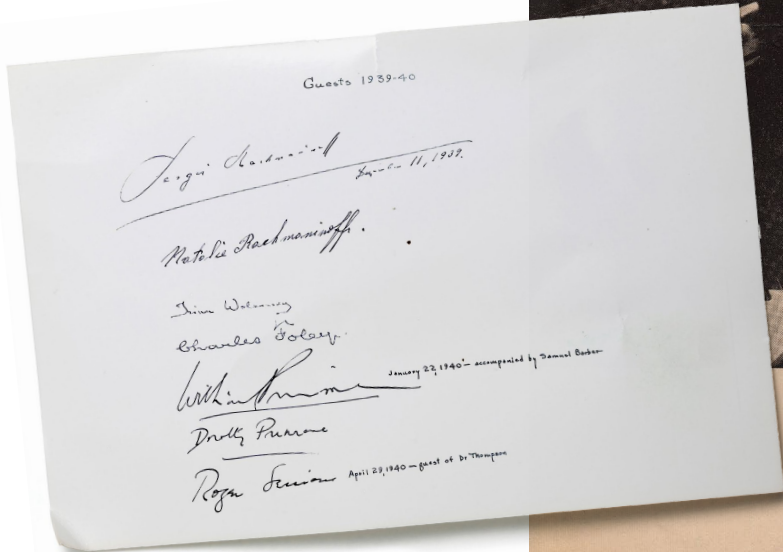 Guests 1939-40
Sergei Rachmaninoff
December 11, 1939.
Natalie Rachmaninoff.
Charles Foley.
William Primrose January 22, 1940 — accompanied by Samuel Barber
Dorothy Primrose
Roger Sessions April 29, 1940 — guest of Dr Thompson